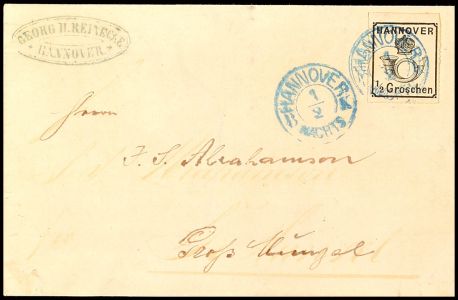 GEORG H. REINECKE
HANNOVER.
HANNOVER
1/2 Groschen
HANNOVER
1
2
NACHTS
HANNOVER
Herrn
J. S. Abrahamson
Groß Munzel